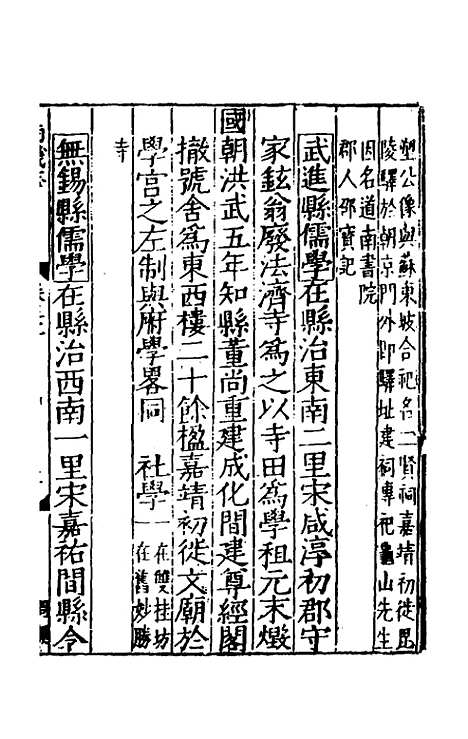 塑公像與蘇東坡合祀名二賢祠嘉靖初徙毘
陵驛於朝京門外即驛址建祠專祀龜山先生
因名道南書院
郡人邵寶記
武進縣儒學在縣治東南二里宋咸淳初郡守
家鉉翁廢法濟寺為之以寺田為學租元末燬
國朝洪武五年知縣董尚重建成化間建尊經閣
撤號舍為東西樓二十餘楹嘉靖初徙文廟於
學宮之左制與府學畧同 社學一在雙桂坊
一在舊妙勝
寺
無錫縣儒學在縣治西南一里宋嘉祐間縣令